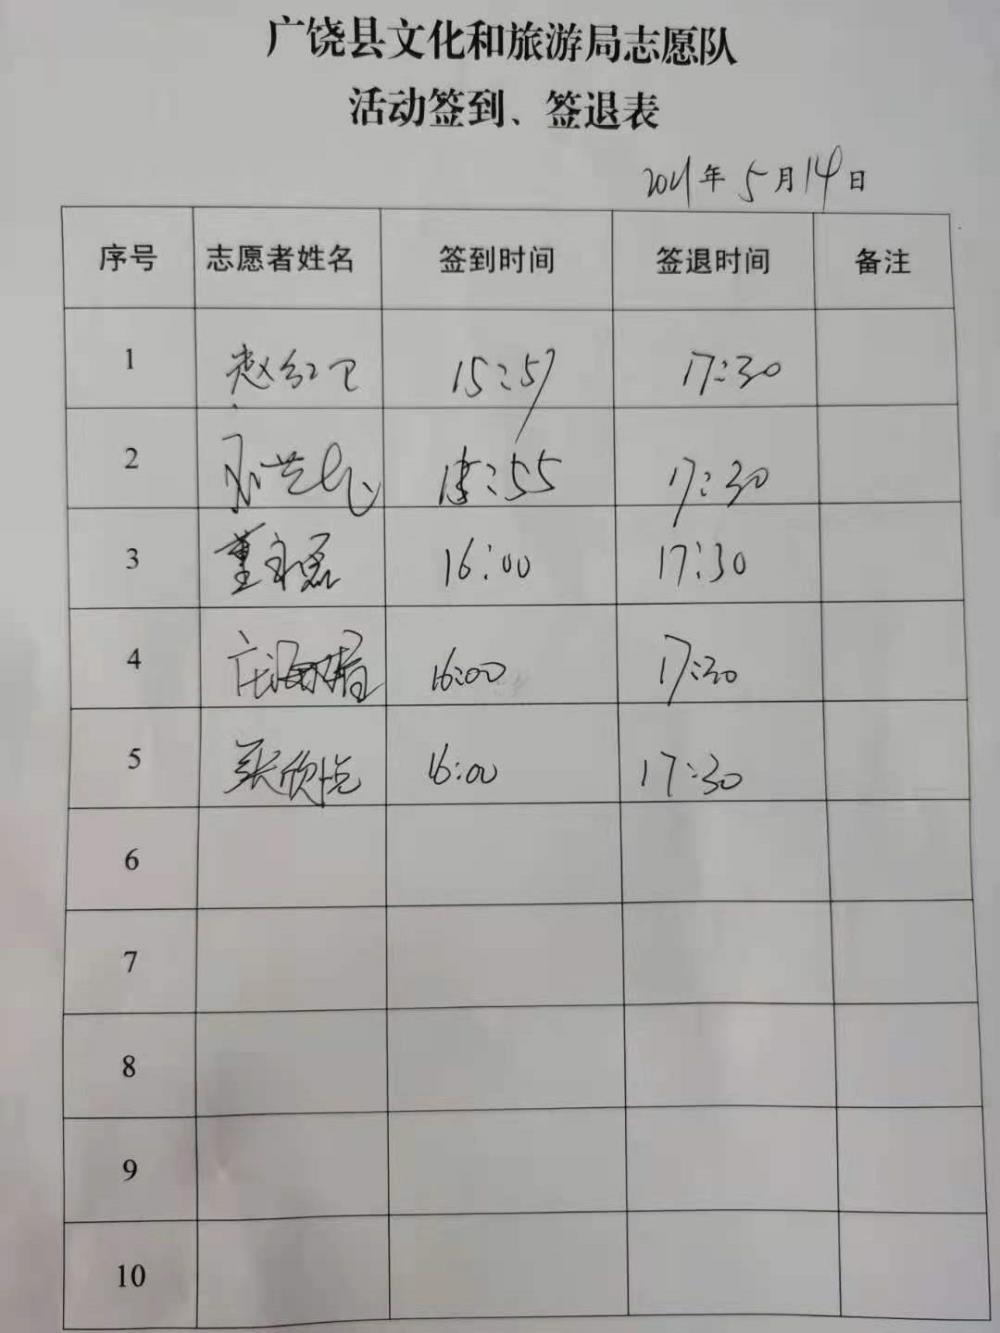 广饶县文化和旅游局志愿队
活动签到、签退表
2021年 5月14日
序号 志愿者姓名 签到时间 签退时间 备注
1 赵红卫 15:57 17:30
2 15:55 17:30
3 董永磊 16:00 17:30
4 16:00 17:30
5 张欣悦 16:00 17:30
6
7
8
9
10